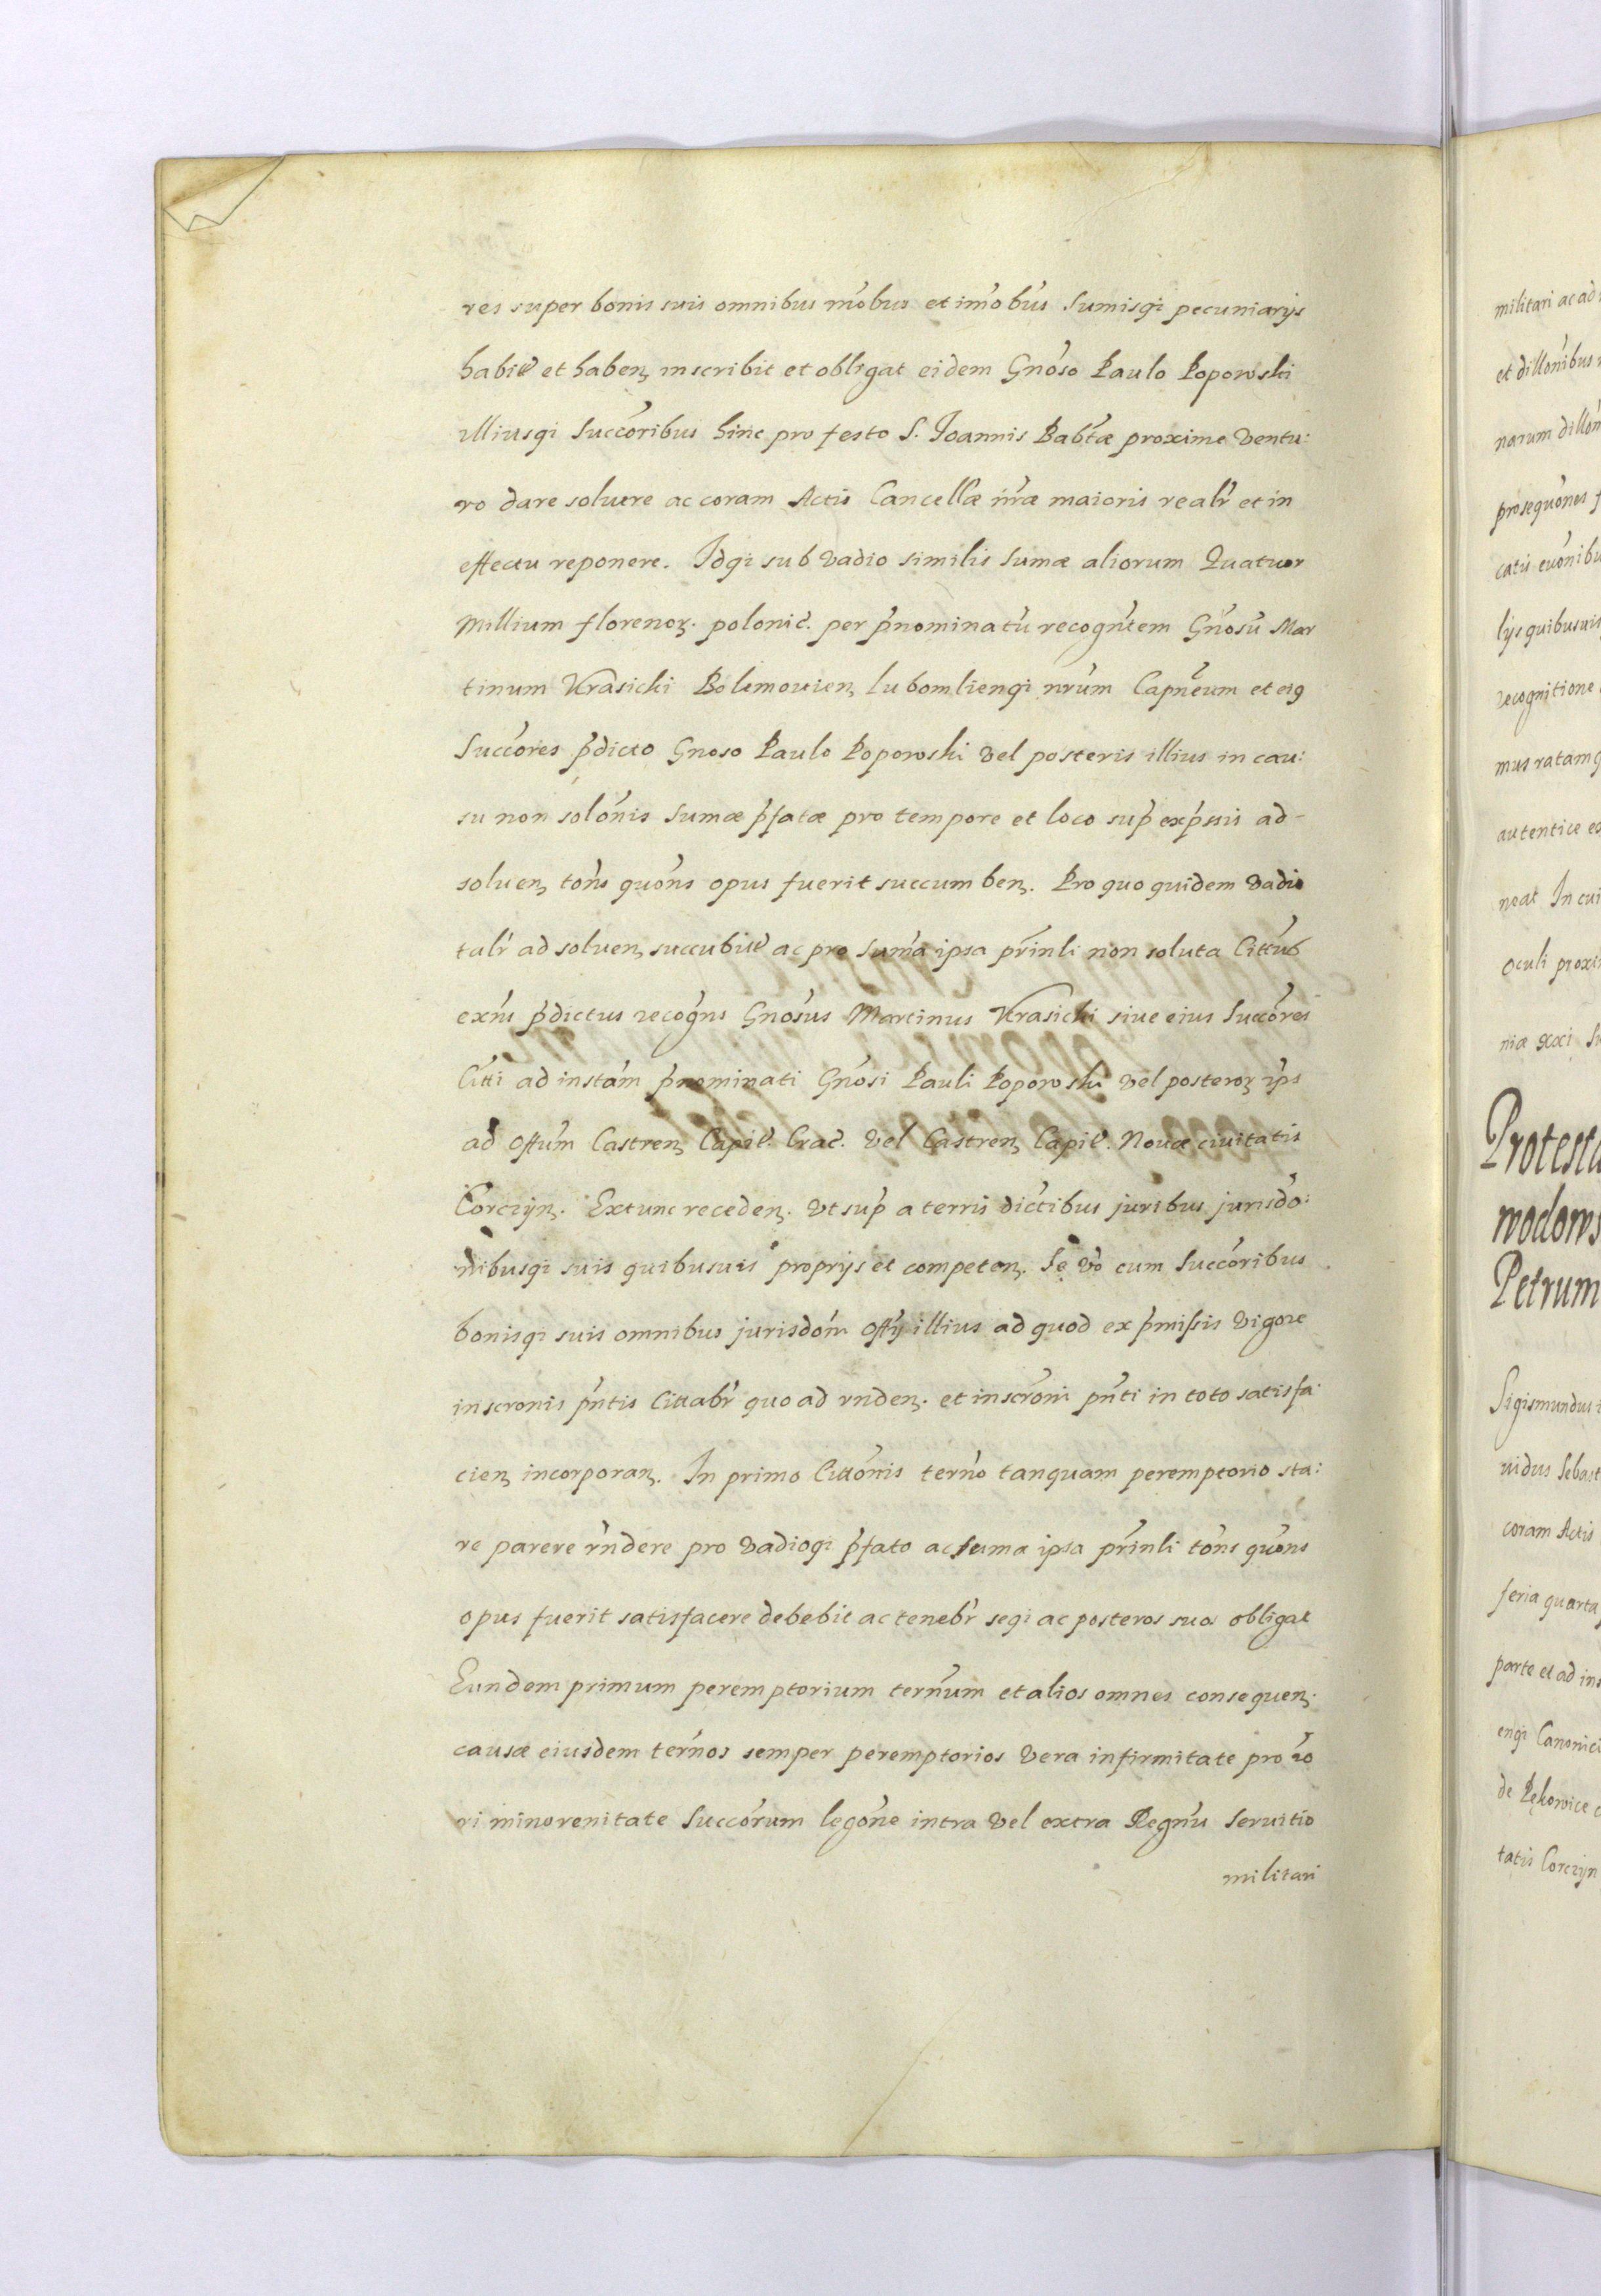 res super bonis suis omnibus mobus et imobus Sumisqi pecuniarijs
habit et haben inscribit et obligat eidem Gnoso Paulo Poporoski
illiusqi Succoribus hinc pro festo S. Joannis Babtæ proxime ventu:
ro dare soluere ac coram Actis Cancellæ nræ maioris realr et in
effectu reponere. Idqi sub vadio similis Sumæ aliorum Quatuor
Millium florenoꝝ. polonic. per pnominatu recogntem Gnosu Mar
tinum Krasicki Bolimouien Lubomliengi nrum Capneum et eiꝯ
Succores pdicto Gnoso Paulo Poporoski vel posteris illius in cau:
su non solonis Sumæ pfatæ pro tempore et loco sup expssis ad-
soluen tons quons opus fuerit succumben. Pro quo quidem vadio
talr adsoluen succubit ac pro Suma ipsa prinli non soluta
pdictus recogns Gnosus Martinus Krasicki siue eius Succores
Citti ad instam pnominati Gnosi Pauli Poporoski vel posteroꝝ ips
ad Offum Castren Capit. Crac. vel Castren Capit. Nouæ ciuitatis
Corczyn. Extunc receden. vt sup a terris dictibus juribus jurisdo:
nibusqi suis quibusuis proprijs et competen. Se vo cum Succoribus
bonisqi suis omnibus jurisdom Offij illius ad quod ex pmissis vigore
inscronis pntis Cittabr quo ad rnden. et inscroni pnti in toto satisfa:
cien incorporan. In primo Cittonis terno tanquam peremptorio sta:
re parere rndere pro vadioqi pfato ac suma ipsa prinli tons quons
opus fuerit satisfacere debebit ac tenebr seqi ac posteros suos obligat
Eundem primum peremptorium ternum et alios omnes consequen.
causæ eiusdem ternos semper peremptorios vera infirmitate pro
ri minorenitate Succorum legone intra vel extra Regnu Seruitio
militari
militari ac ad
et dillonibus
narum dillon
prosequones
catis euonibu
lijs quibusuis
recognitione
mus ratamq
autentice
neat In cui
Oculi proxi
niæ xxi
Protesta
wodows
Petrum
Sigismundus
uidus Sebast
coram Actis
feria quarta
parte et ad ins
engi Canonici
de Pękowice
tatis Corczyn